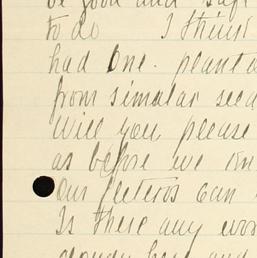 be good and safe
to do I think
had one. plant
from simular seed
Will you please
as before we
Our can
Is there any
and